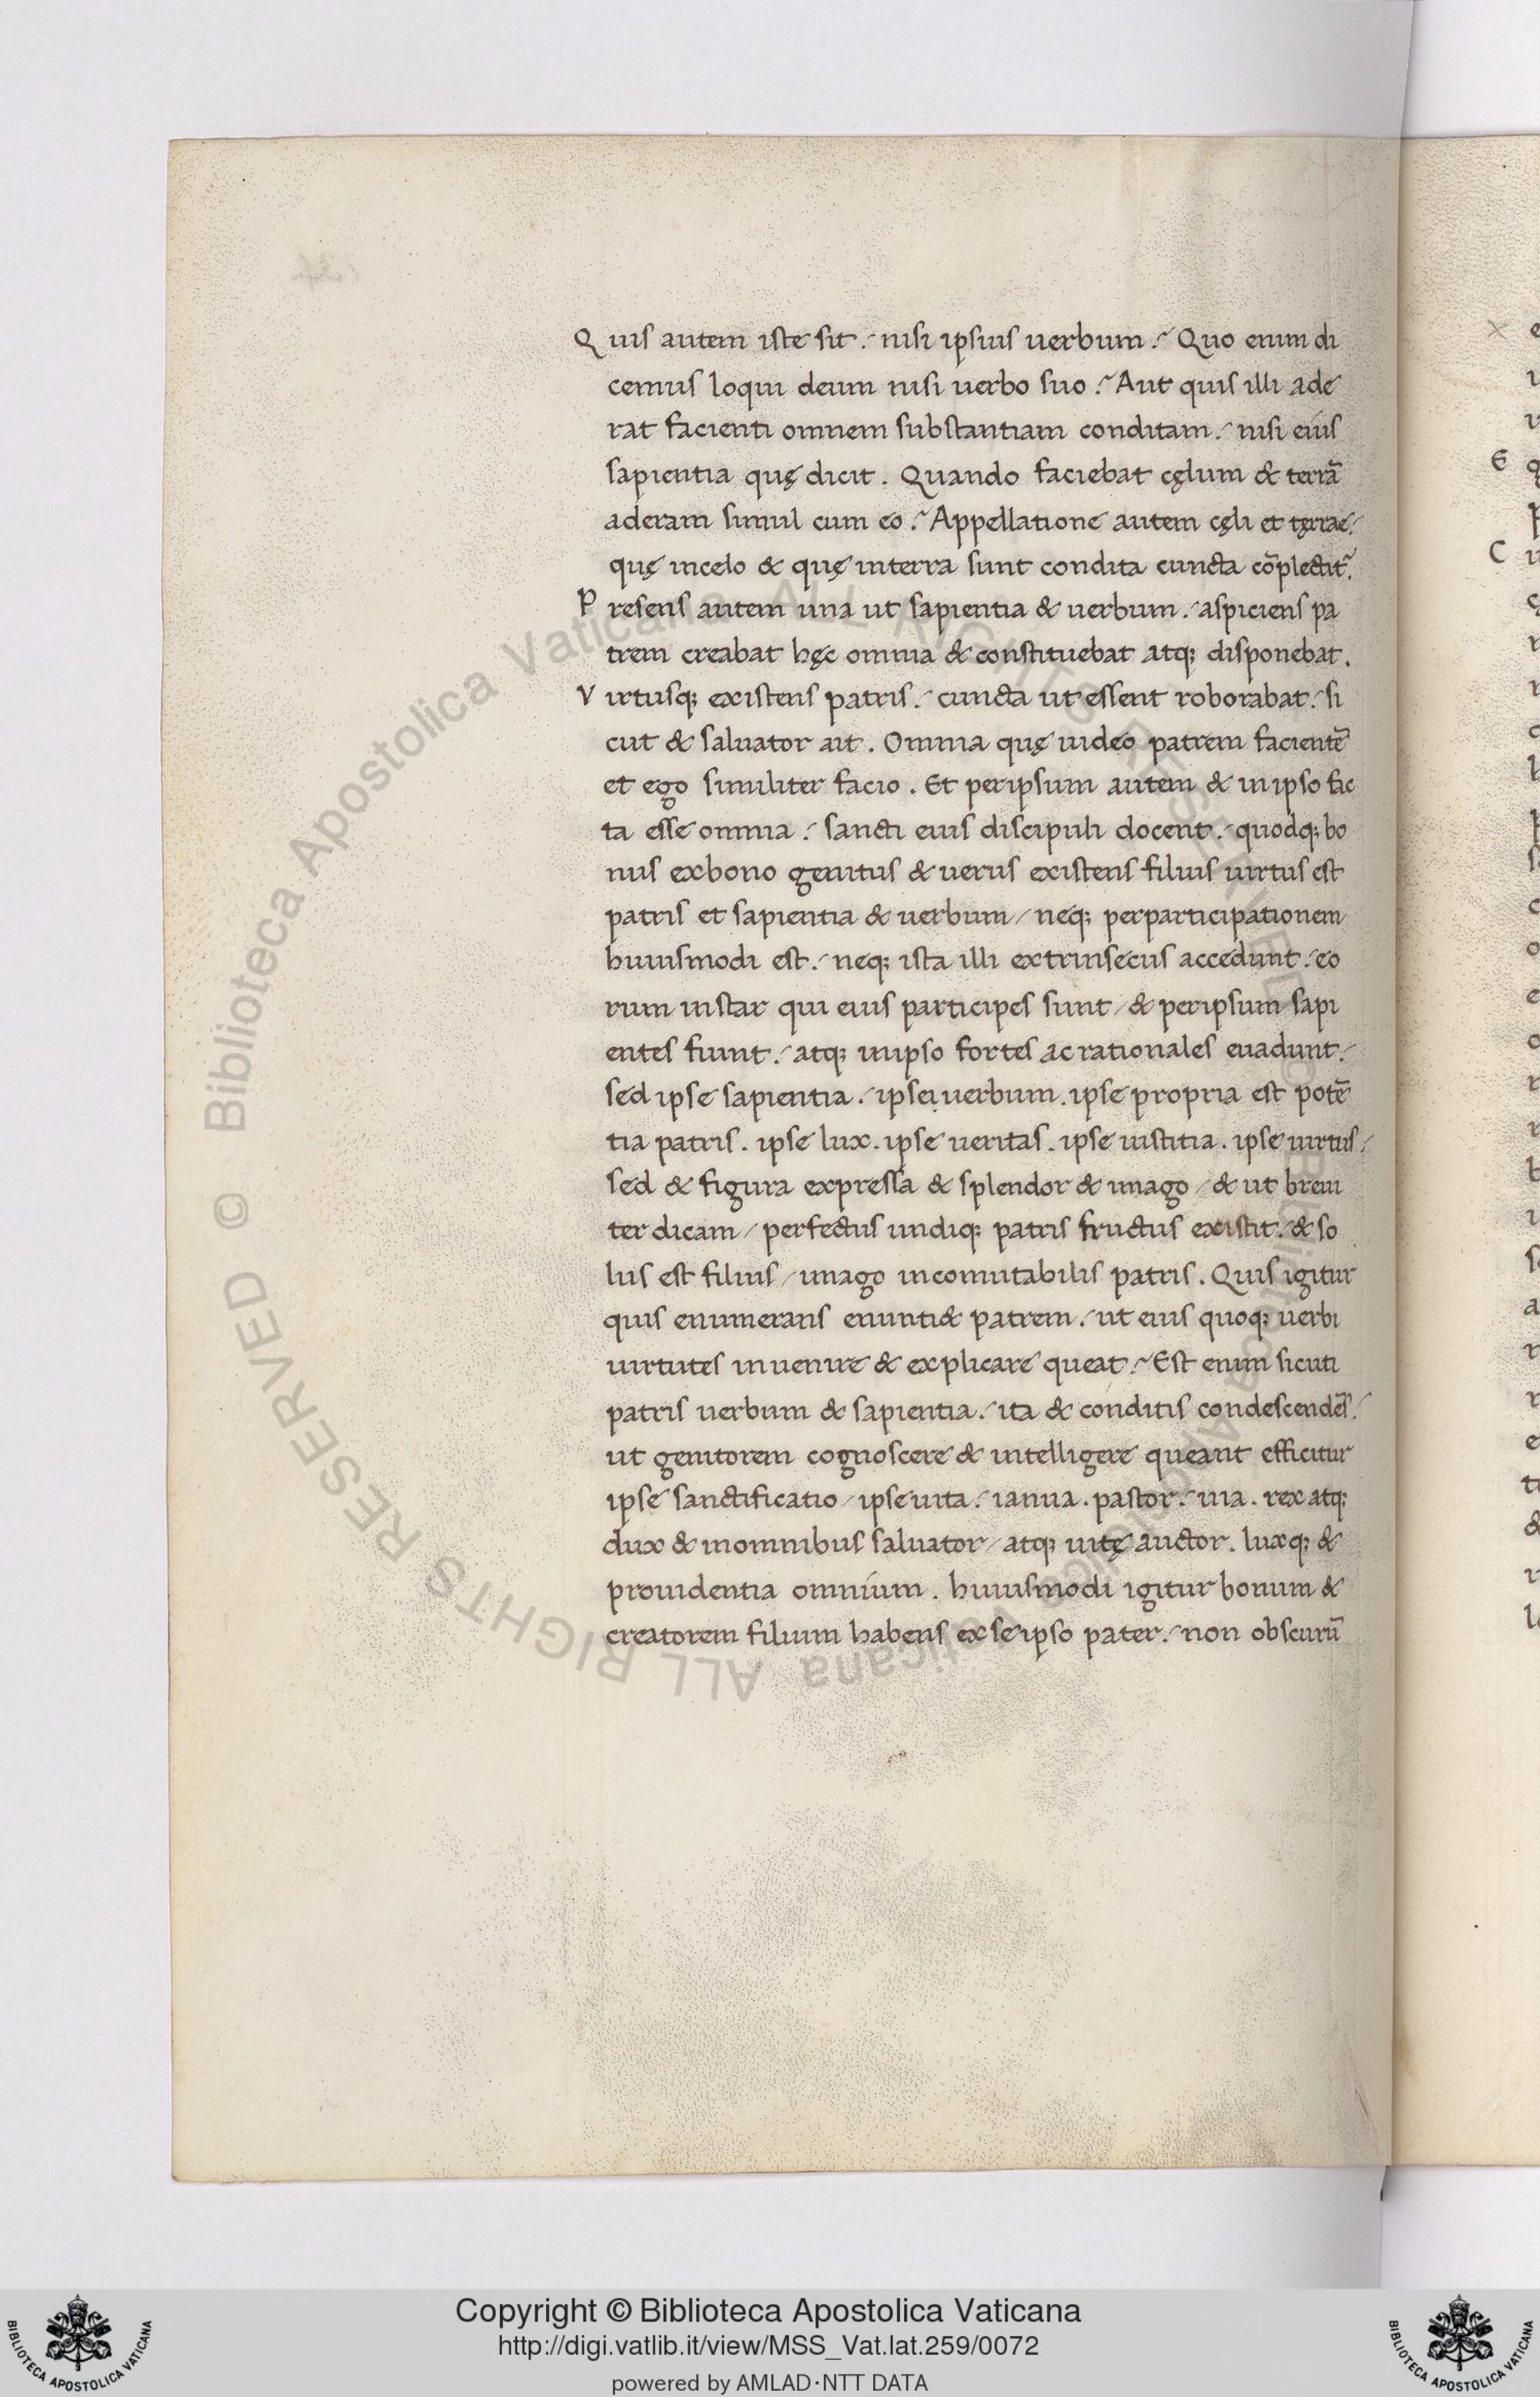 Quis autem iste sit./ nisi ipsius uerbum.~ Quo enim di
cemus loqui deum nisi uerbo suo.~ Aut quis illi ade
rat facienti omnem substantiam conditam./ nisi eius
sapientia quę dicit. Quando faciebat cęlum & terrā
aderam simul cum eo.~ Appellatione autem cęli et tęrrae./
quę incelo & quę interra sunt condita cuncta cōplectit᷑.
Presens autem una ut sapientia & uerbum./ aspiciens pa
trem creabat hęc omnia & constituebat atq; disponebat.
Virtusq; existens patris./ cuncta ut essent roborabat./ si
cut & saluator ait. Omnia quę uideo patrem facientē
et ego similiter facio. Et peripsum autem & inipso fac
ta esse omnia./ sancti eius discipuli docent./ quodq; bo
nus exbono genitus & uerus existens filius uirtus est
patris et sapientia & uerbum/ neq; perparticipationem
huiusmodi est./ neq; ista illi extrinsecus accedunt./ eo
rum instar qui eius participes sunt/ & peripsum sapi
entes fiunt./ atq; inipso fortes ac rationales euadunt./
sed ipse sapientia./ ipse uerbum. ipse propria est potē
tia patris. ipse lux. ipse ueritas. ipse iustitia. ipse uirtus/
sed & figura expressa & splendor & imago/ & ut breui
ter dicam/ perfectus undiq; patris fructus existit./ & so
lus est filius/ imago incomutabilis patris. Quis igitur
quis enumerans enunti& patrem./ ut eius quoq; uerbi
uirtutes inuenire & explicare queat.~ Est enim sicuti
patris uerbum & sapientia./ ita & conditis condescendēs./
ut genitorem cognoscere & intelligere queant efficitur
ipse sanctificatio/ ipse uita./ ianua. pastor./ uia. rex atq;
dux & inomnibus saluator/ atq; uitę auctor. luxq; &
prouidentia omnium. huiusmodi igitur bonum &
creatorem filium habens ex se ipso pater./ non obscurū
Copyright © Biblioteca Apostolica Vaticana
http://digi.vatlib.it/view/MSS_Vat.lat.259/0072
powered by AMLAD·NTT DATA
BIBLIOTECA APOSTOLICA VATICANA
BIBLIOTECA APOSTOLICA VATICANA
© Biblioteca Apostolica Vaticana ALL RIGHTS RESERVED
© Biblioteca Apostolica Vaticana ALL RIGHTS RESERVED